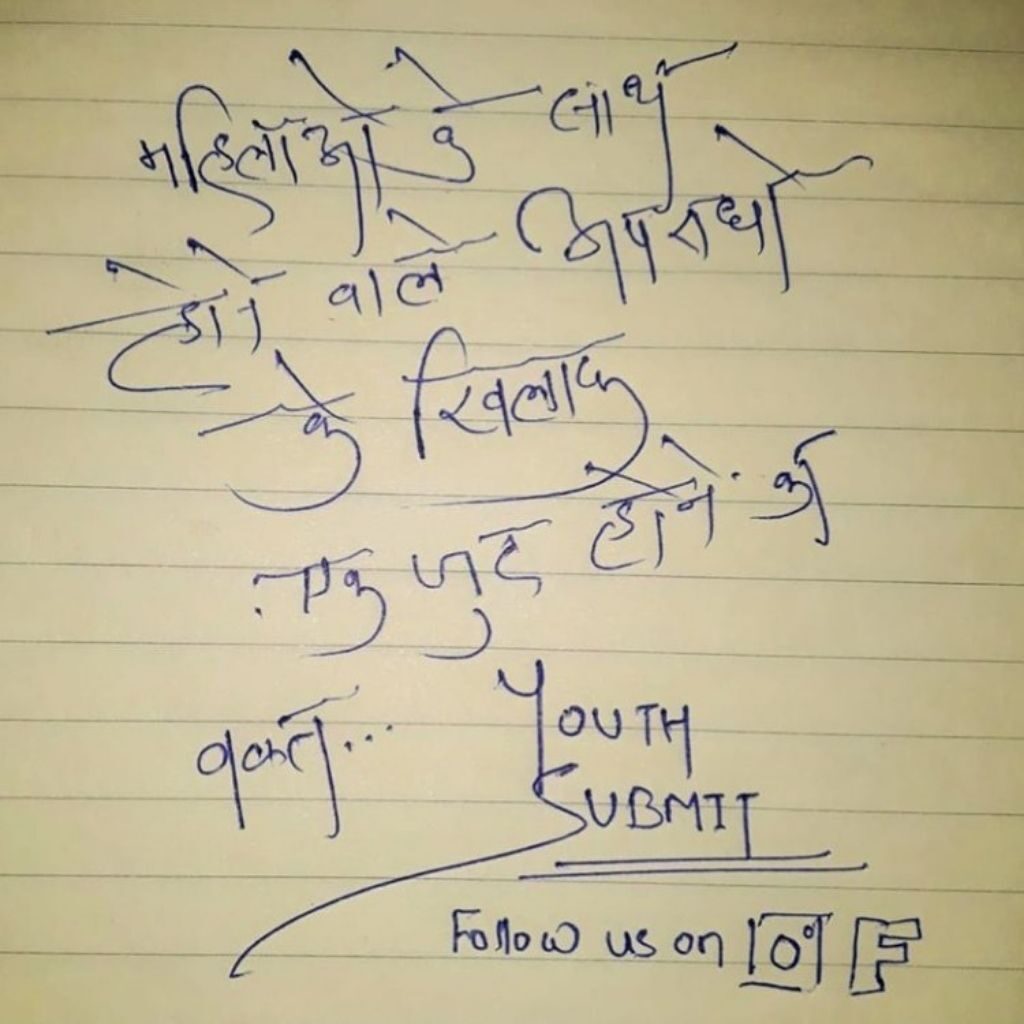 महिलाओं के साथ
होने वाले अपराधों
के खिलाफ
एक जुट होने का
वक्त...
YOUTH
SUBMIT
Follow us on